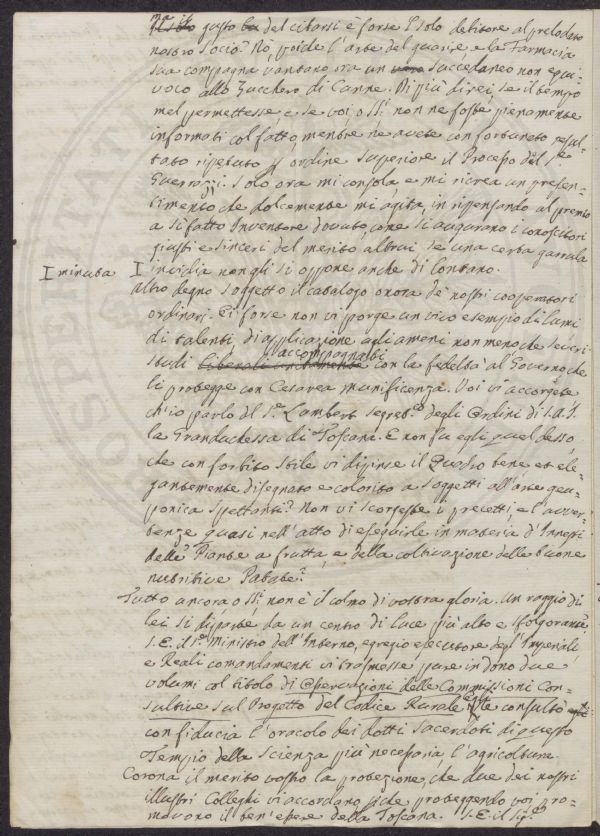 gusto del cibarsi è forse il solo debitore al prelodato
nostro socio? No, poiche l'arte del guarire e la Farmacia
sua compagna vantano ora un succedaneo non equi=
voco allo Zucchero di Canne. Di più direi, se il tempo
mel permettesse, e se voi o SS.i non ne foste pienamente
informati col fatto, mentre ne avete con fortunato resul=
tato ripetuto p ordine superiore il Processo del Sr.e
Guerrazzi. Solo ora mi consola e mi ricrea un presen=
timento che dolcemente mi agita, in ripensando al premio
a sì fatto Inventore dovuto, come si augurano i conoscitori
giusti e sinceri del merito altrui se una certa garrula
I minuta I invidia non gli si oppone anche di lontano.
Altro degno soggetto il catalogo onora de nostri cooperatori
ordinari. Ei forse non vi porge un vivo esempio di lumi
di talenti, di applicazione agli ameni non meno che severi
accompagnati
studi liberali unitamente con la fedeltà al Governo che
li protegge con Cesarea munificenza. Voi vi accorgete
ch'io parlo del Sr. Lambert segret.o degli Ordini di S.A.I.
la Granduchessa di Toscana. E non fu egli quel desso,
che con forbito stile vi dipinse il Quadro bene ed ele=
gantemente disegnato e colorito a soggetti all'arte geo=
ponica spettanti? Non vi scorgeste i precetti, e l'avver=
tenze quasi nell'atto di eseguirle in materia d'Innesti
delle Piante a frutta, e della coltivazione delle buone
nutritive Patate?
Tutto ancora o SS.i non è il colmo di vostra gloria. Un raggio di
lei si diparte da un centro di luce più alto e sfolgorante
S.E. il Sr. Ministro dell'Interno, egregio esecutore degl'Imperiali
e Reali comandamenti vi trasmesse pure in dono due
volumi col titolo di Osservazioni delle Commissioni Con=
sultive sul Progetto del Codice Rurale, e ne consultò
con fiducia l'oracolo dei dotti Sacerdoti di questo
Tempio della Scienza più necessaria l'agricoltura.
Corona il merito vostro la protezione, che due dei nostri
illustri Colleghi vi accordano, siche proteggendo voi pro=
movono il ben'essere della Toscana. S.E. il Sig.e